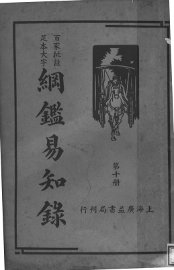 百家批註
足本大字
綱鑑易知錄
第十册
上海廣益書局刊行